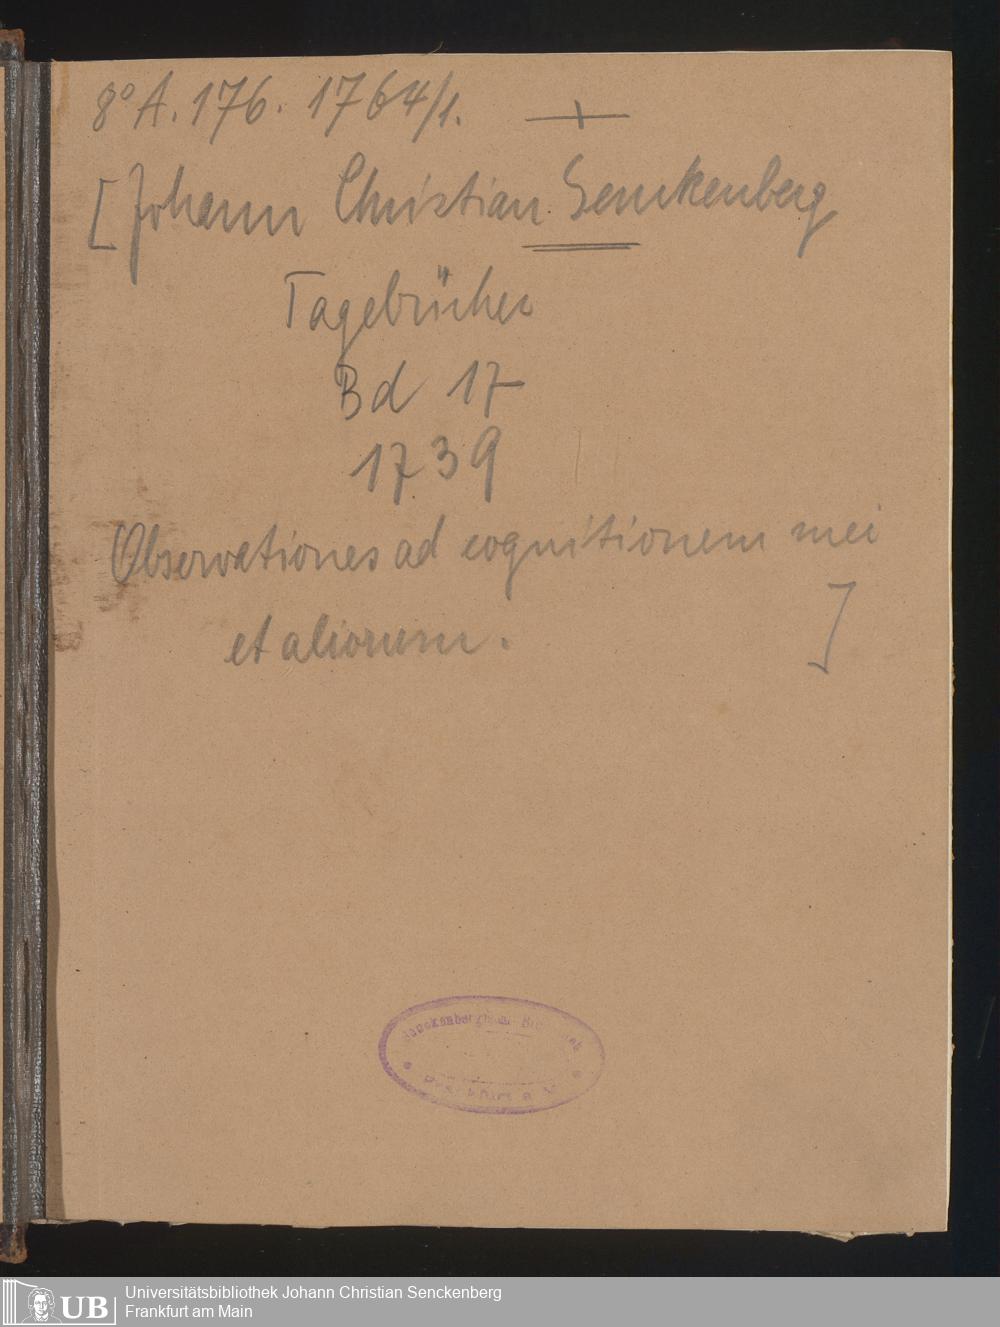 8° A. 176. 1764/1.
[Johann Christian Senckenberg
Tagebücher
Bd 17
1739
Observationes ad cognitionem mei
et aliorum. ]
Senckenbergische
UB
Universitätsbibliothek Johann Christian Senckenberg
Frankfurt am Main